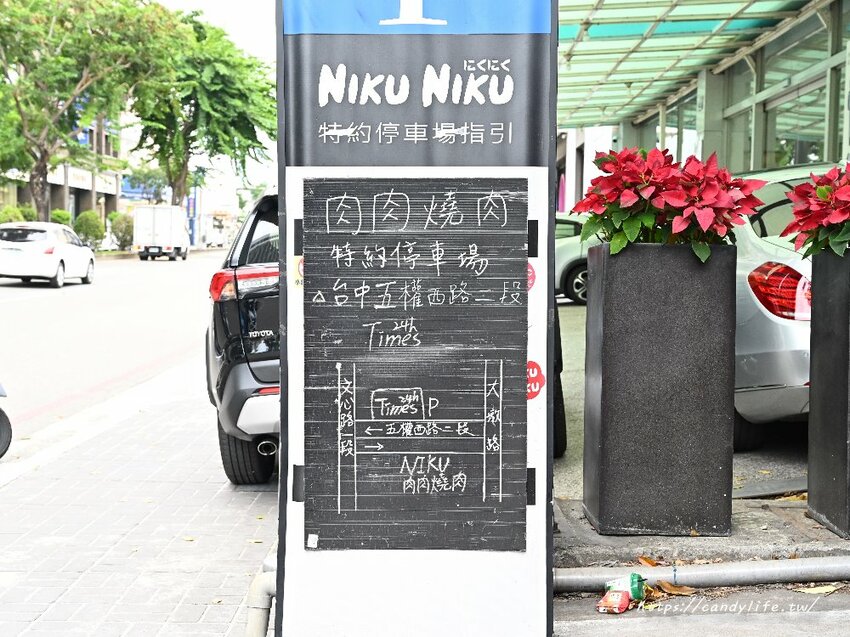 にくにく
NIKU NIKU
特約停車場指引
肉肉燒肉
特約停車場
△台中五權西路二段
24h
Times
文心路一段
24h
Times P
大墩路
←五權西路二段
→
NIKU
肉肉燒肉
TOYOTA
https://candylife.tw/